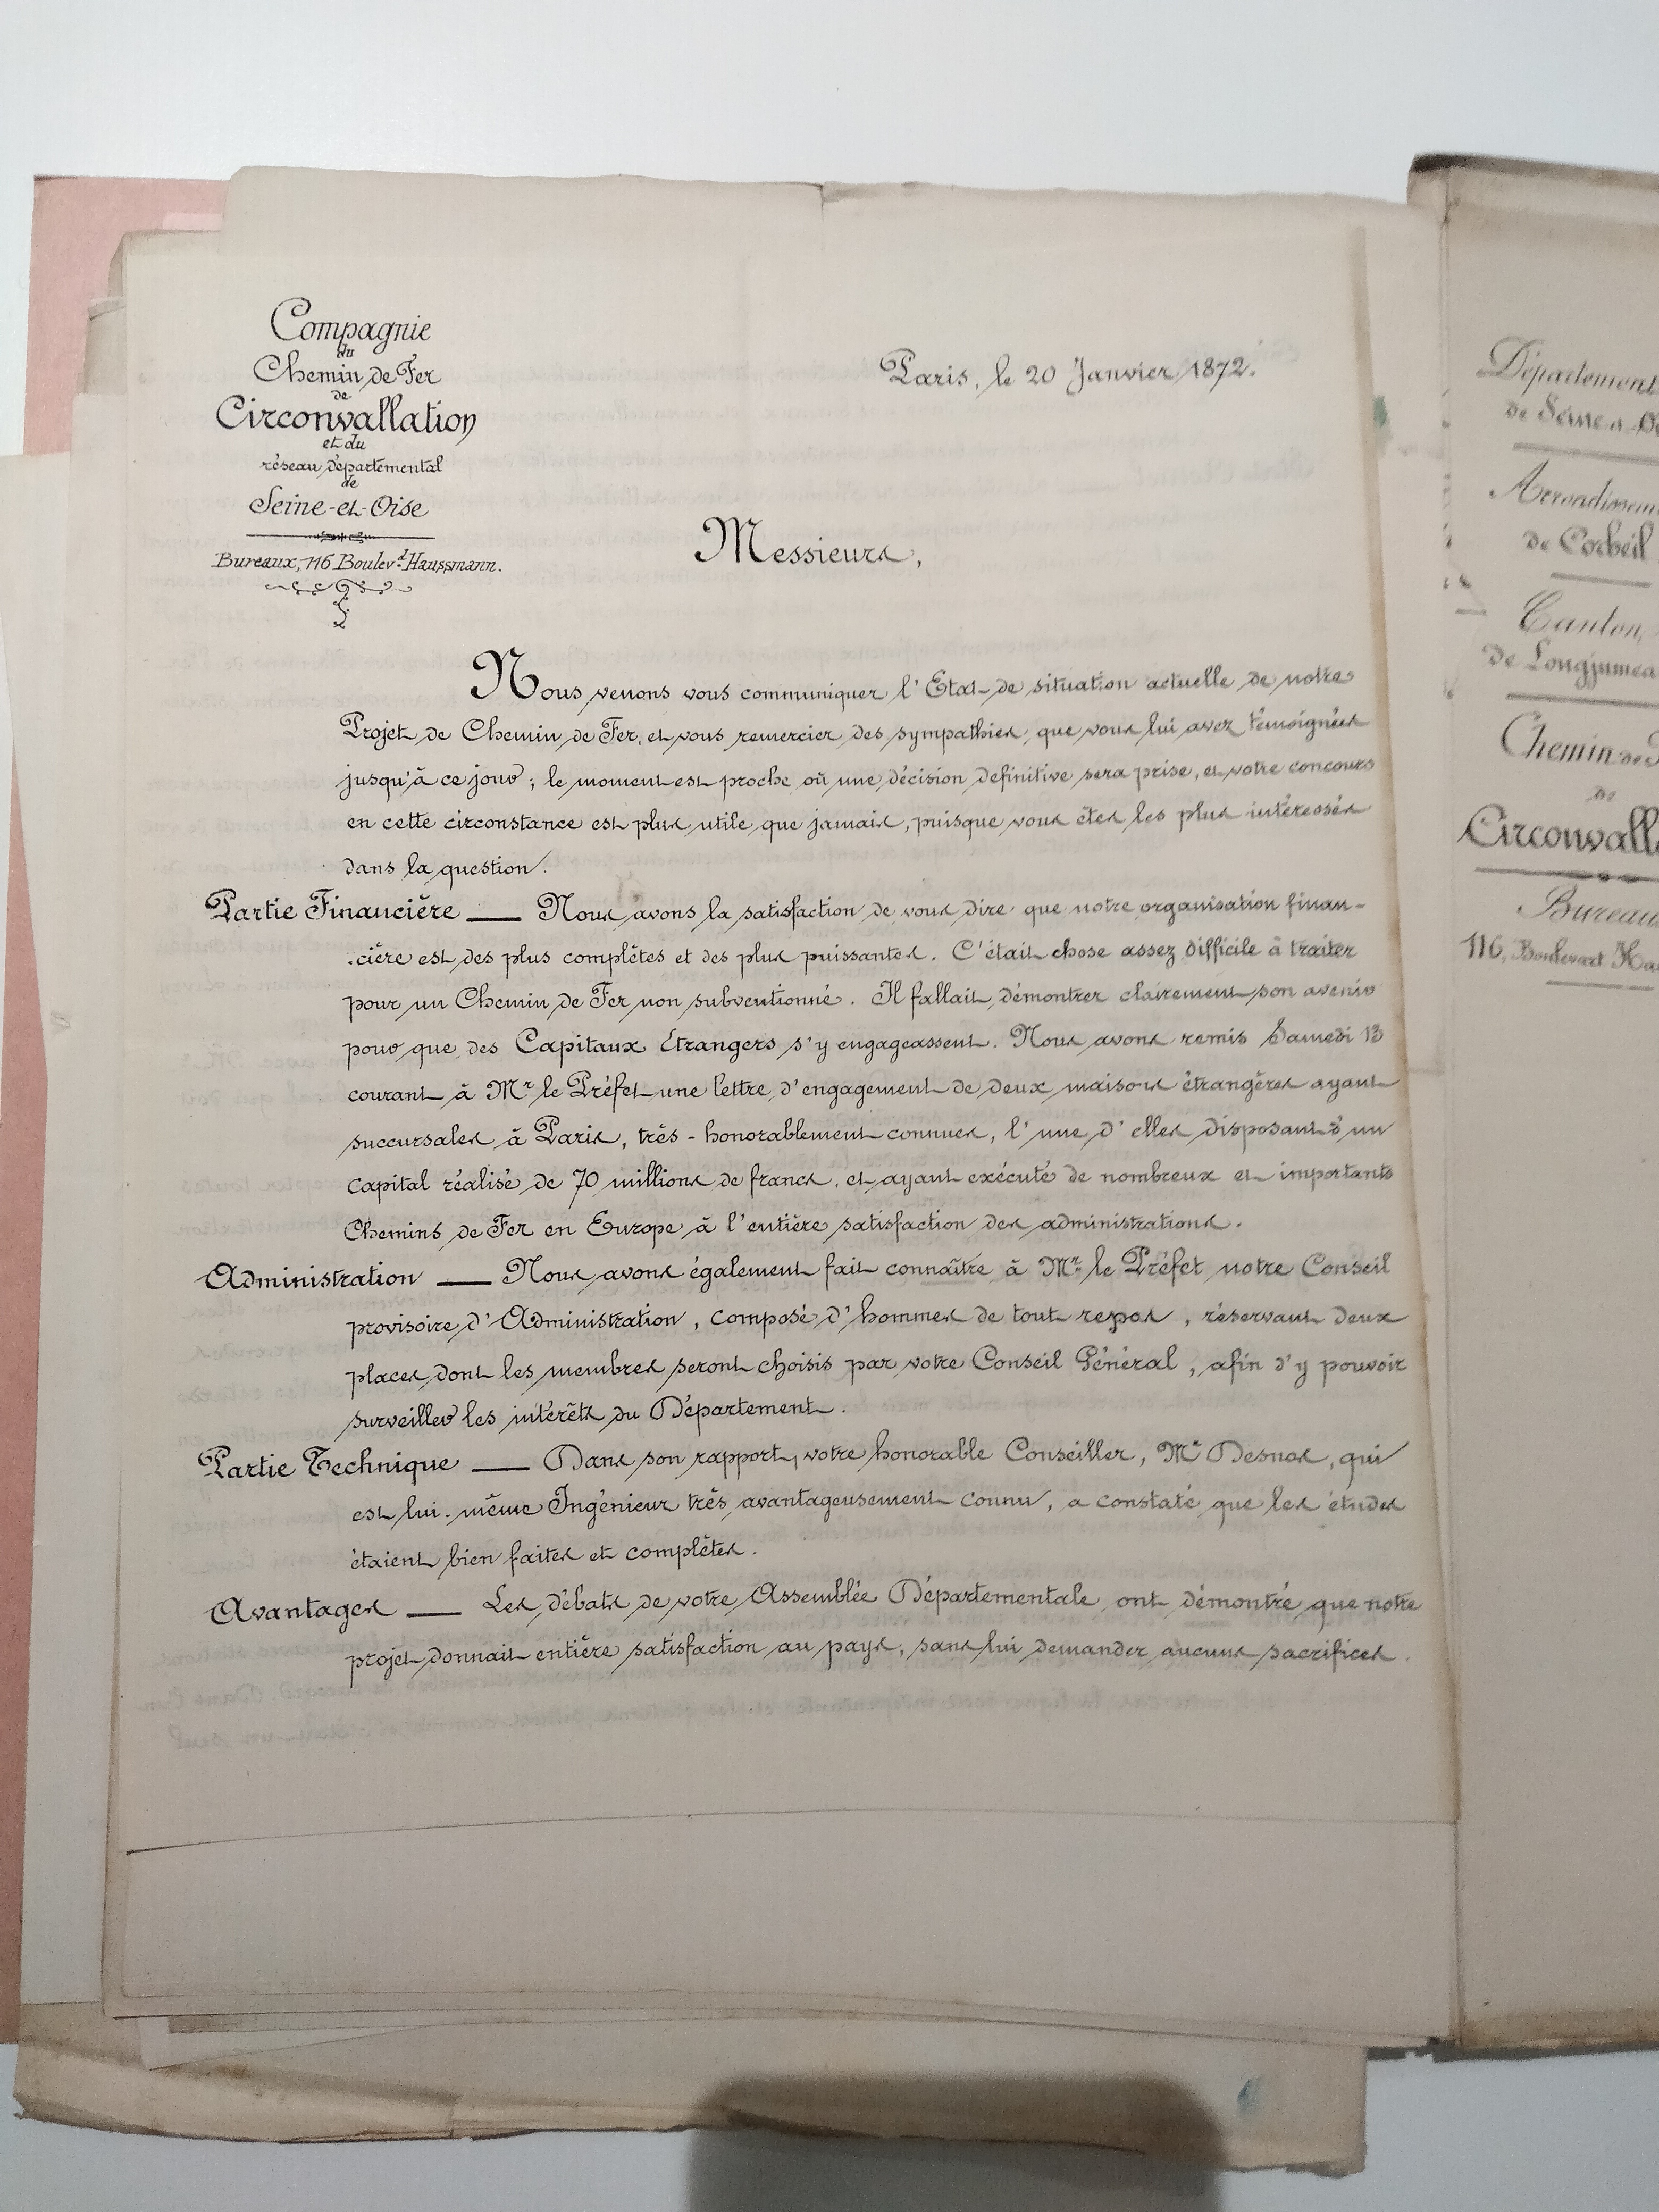 Compagnie
du
Chemin de Fer
de
Circonvallation
et du
réseau départemental
de
Seine-et-Oise
Bureaux, 116 Boulev.d Haussmann.
Paris, le 20 Janvier 1872.
Messieurs,
Nous venons vous communiquer l'Etat de situation actuelle de notre
Projet de Chemin de Fer, et vous remercier des sympathies que vous lui avez témoignées
jusqu'à ce jour ; le moment est proche où une décision définitive sera prise, et votre concours
en cette circonstance est plus utile que jamais, puisque vous êtes les plus intéressés
dans la question.
Partie Financière — Nous avons la satisfaction de vous dire que notre organisation finan-
cière est des plus complètes et des plus puissantes. C'était chose assez difficile à traiter
pour un Chemin de Fer non subventionné. Il fallait démontrer clairement son avenir
pour que des Capitaux Étrangers s'y engageassent. Nous avons remis Samedi 13
courant à Mr le Préfet une lettre d'engagement de deux maisons étrangères ayant
succursales à Paris, très-honorablement connues, l'une d'elles disposant d'un
capital réalisé de 70 millions de francs, et ayant exécuté de nombreux et importants
Chemins de Fer en Europe à l'entière satisfaction des administrations.
Administration — Nous avons également fait connaître à Mr le Préfet notre Conseil
provisoire d'Administration, composé d'hommes de tout repos, réservant deux
places dont les membres seront choisis par votre Conseil Général, afin d'y pouvoir
surveiller les intérêts du Département.
Partie Technique — Dans son rapport, votre honorable Conseiller, Mr Desnos, qui
est lui-même Ingénieur très avantageusement connu, a constaté que les études
étaient bien faites et complètes.
Avantages — Les débats de votre Assemblée Départementale ont démontré que notre
projet donnait entière satisfaction au pays, sans lui demander aucuns sacrifices.
Département
de Seine et O
Arrondissem
de Corbeil
Canton
de Longjumea
Chemin de F
de
Circonvall
Bureau
116, Boulevart Ha